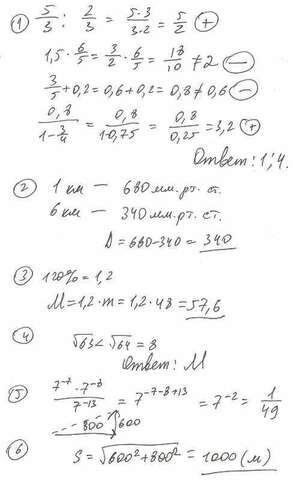 ① 5/3 : 2/3 = 5·3/3·2 = 5/2 ⊕
1,5 · 6/5 = 3/2 · 6/5 = 18/10 ≠ 2 ⊖
3/5 + 0,2 = 0,6 + 0,2 = 0,8 ≠ 0,6 ⊖
0,8/1-3/4 = 0,8/1-0,75 = 0,8/0,25 = 3,2 ⊕
Ответ: 1; 4.
② 1 км — 680 мм. рт. ст.
6 км — 340 мм. рт. ст.
Δ = 680-340 = 340
③ 120% = 1,2
M = 1,2 · m = 1,2 · 48 = 57,6
④ √63 < √64 = 8
Ответ: M
⑤ 7^-7 · 7^-8/7^-13 = 7^-7-8+13 = 7^-2 = 1/49
800 600
⑥ S = √600²+800² = 1000 (м)